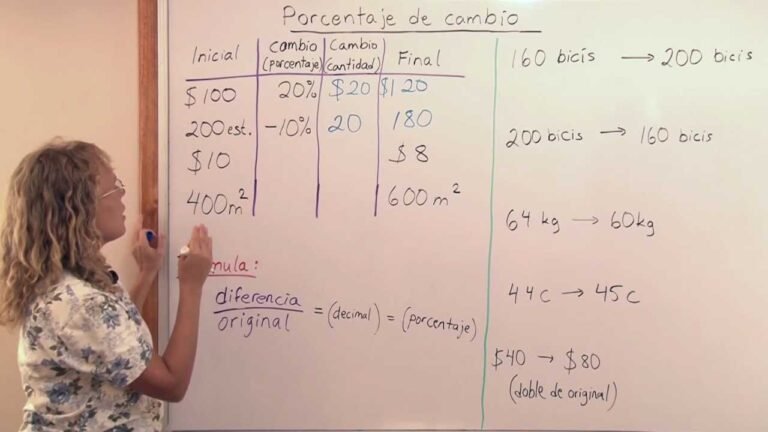 Porcentaje de cambio
Inicial cambio (porcentaje) Cambio (cantidad) Final
$100 20% $20 $120
200 est. -10% 20 180
$10 $8
400 m² 600 m²
mula:
diferencia
original
= (decimal) = (porcentaje)
160 bicis → 200 bicis
200 bicis → 160 bicis
64 kg → 60kg
44c → 45c
$40 → $80
(doble de original)